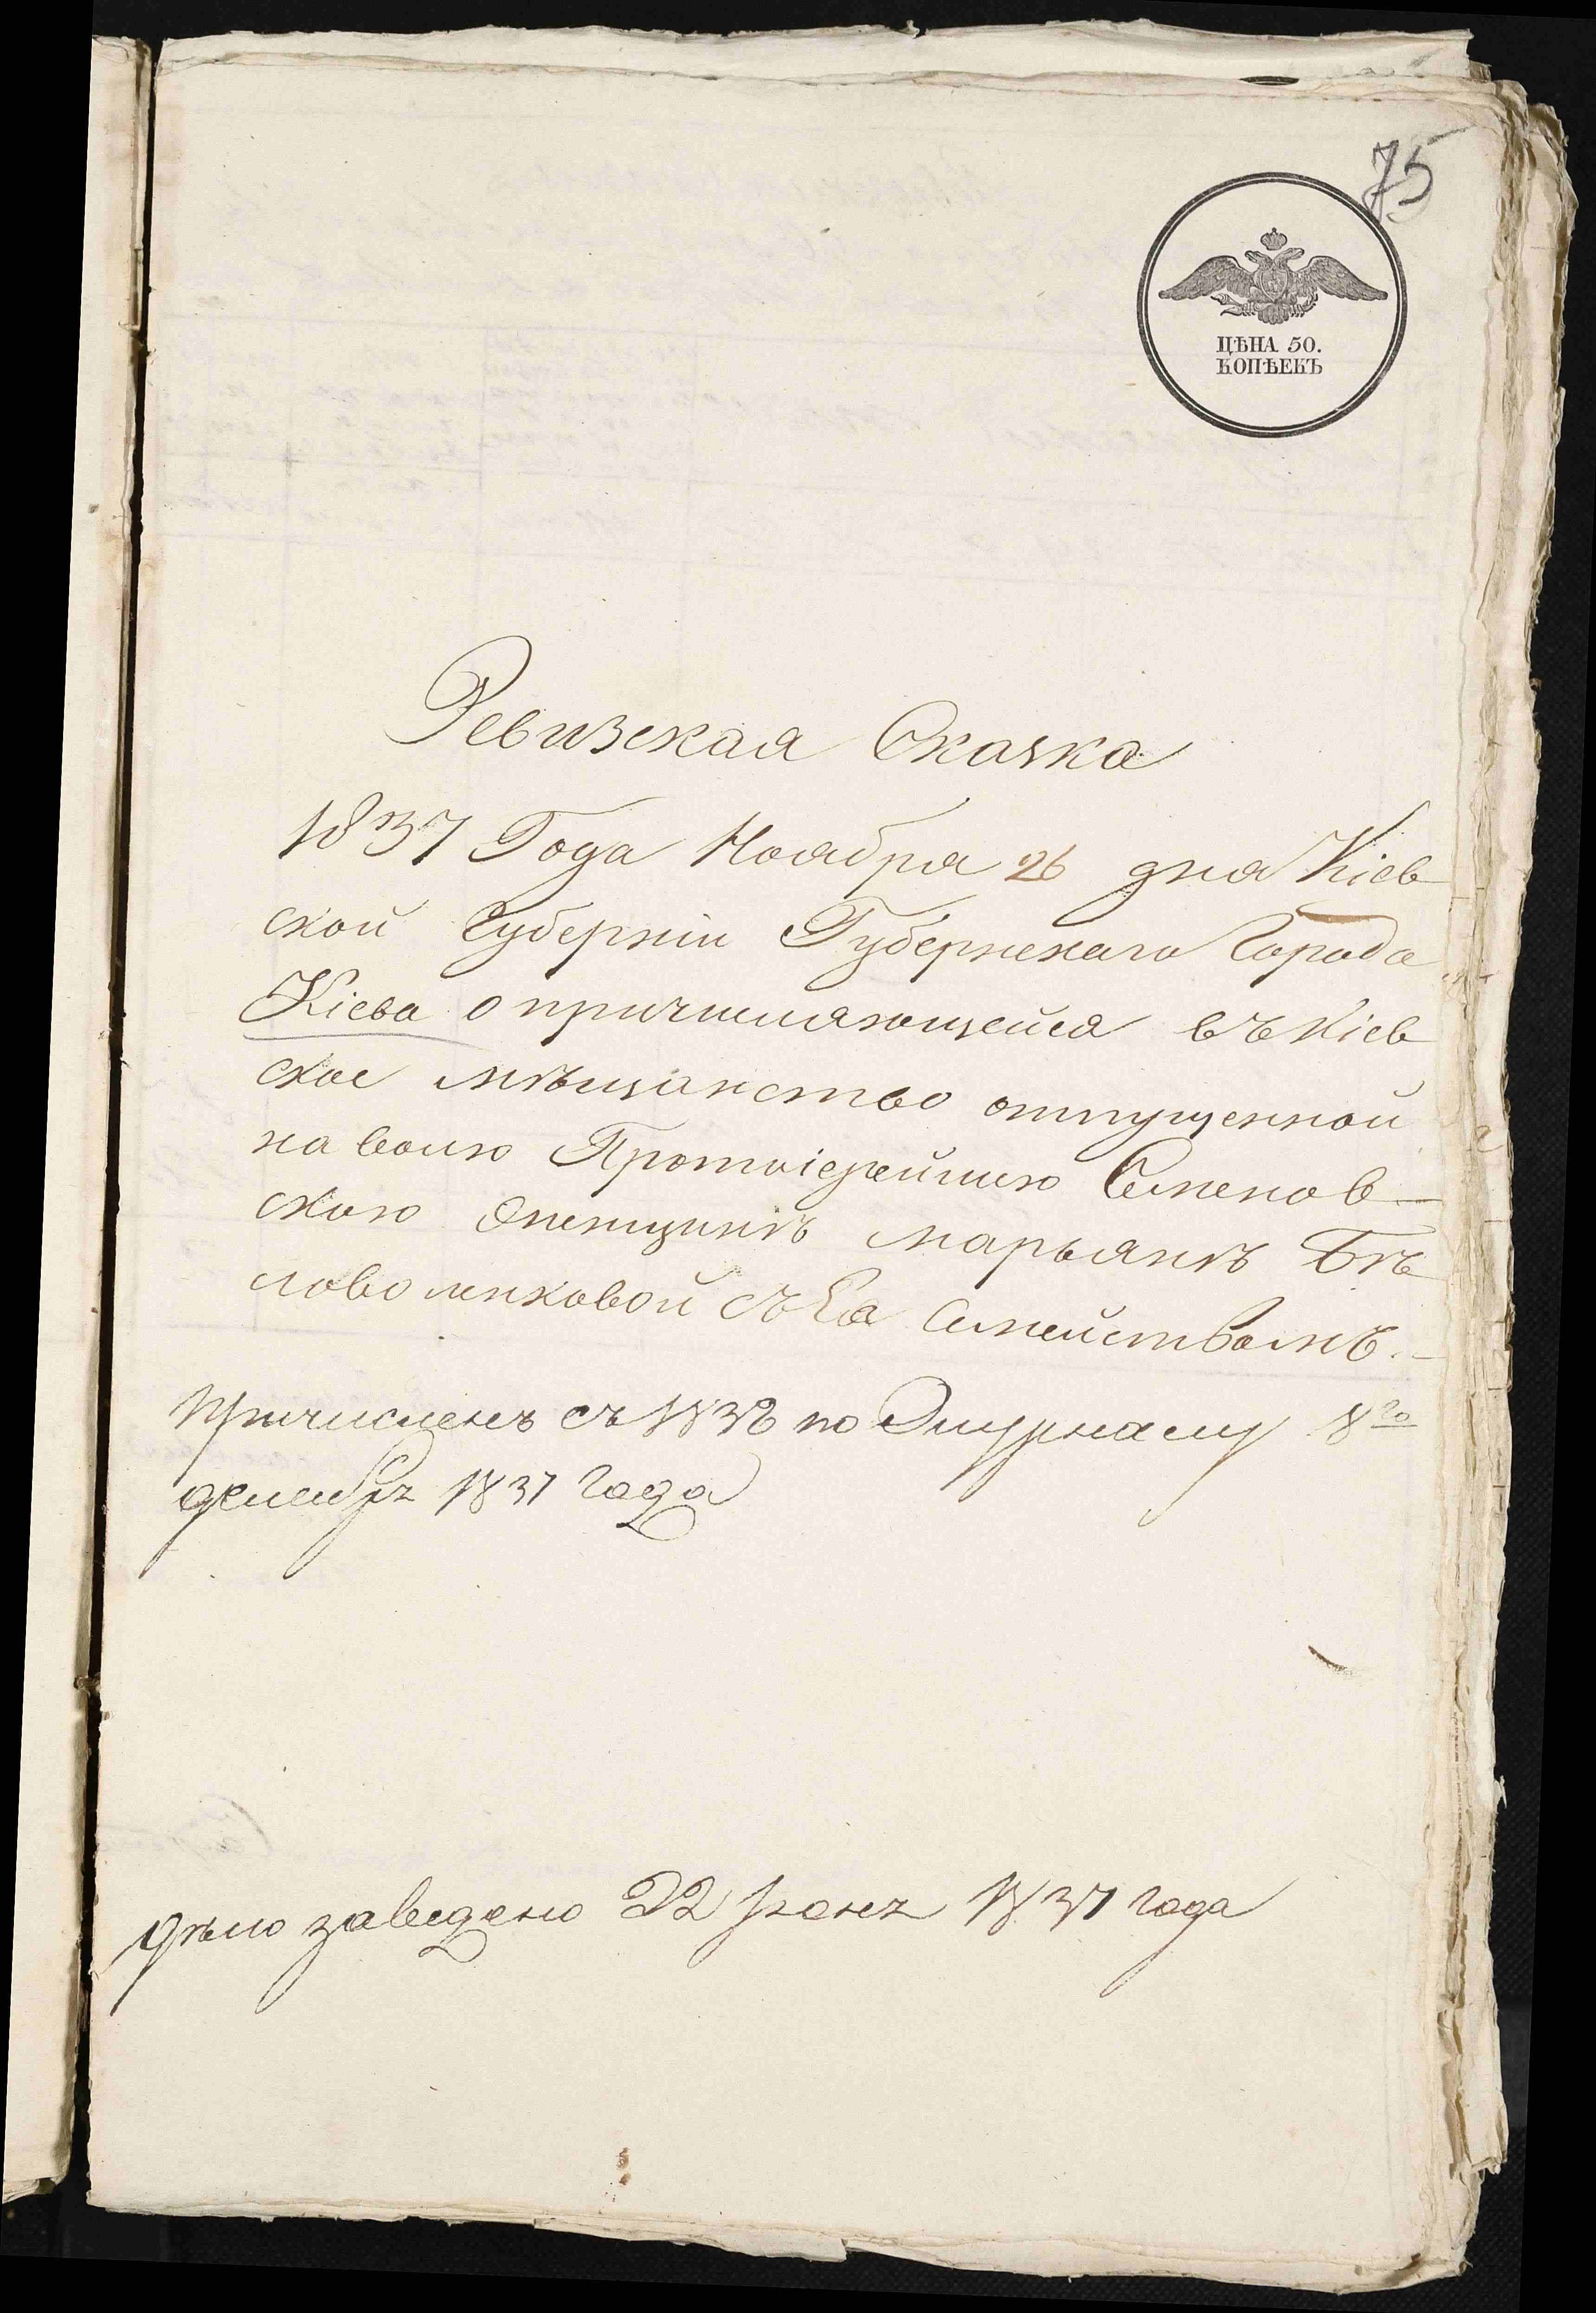 75
ЦѢНА 50.
КОПѢЕКЪ
Ревизская Сказка
1837 Года Ноября 26 дня Кіев
ской Губерніи Губернскаго Города
Кіева о причисляющейся въ Кіев
ское мѣщанство отпущенной
на волю Протоіерейшею Семенов-
скою женщинѣ Марьянѣ Бѣ
ловоленковой съ Ея Семействомъ.-
Причисленъ съ 1838 по Журналу 8го
декабр 1837 Года
дѣло заведено 22 1837 года